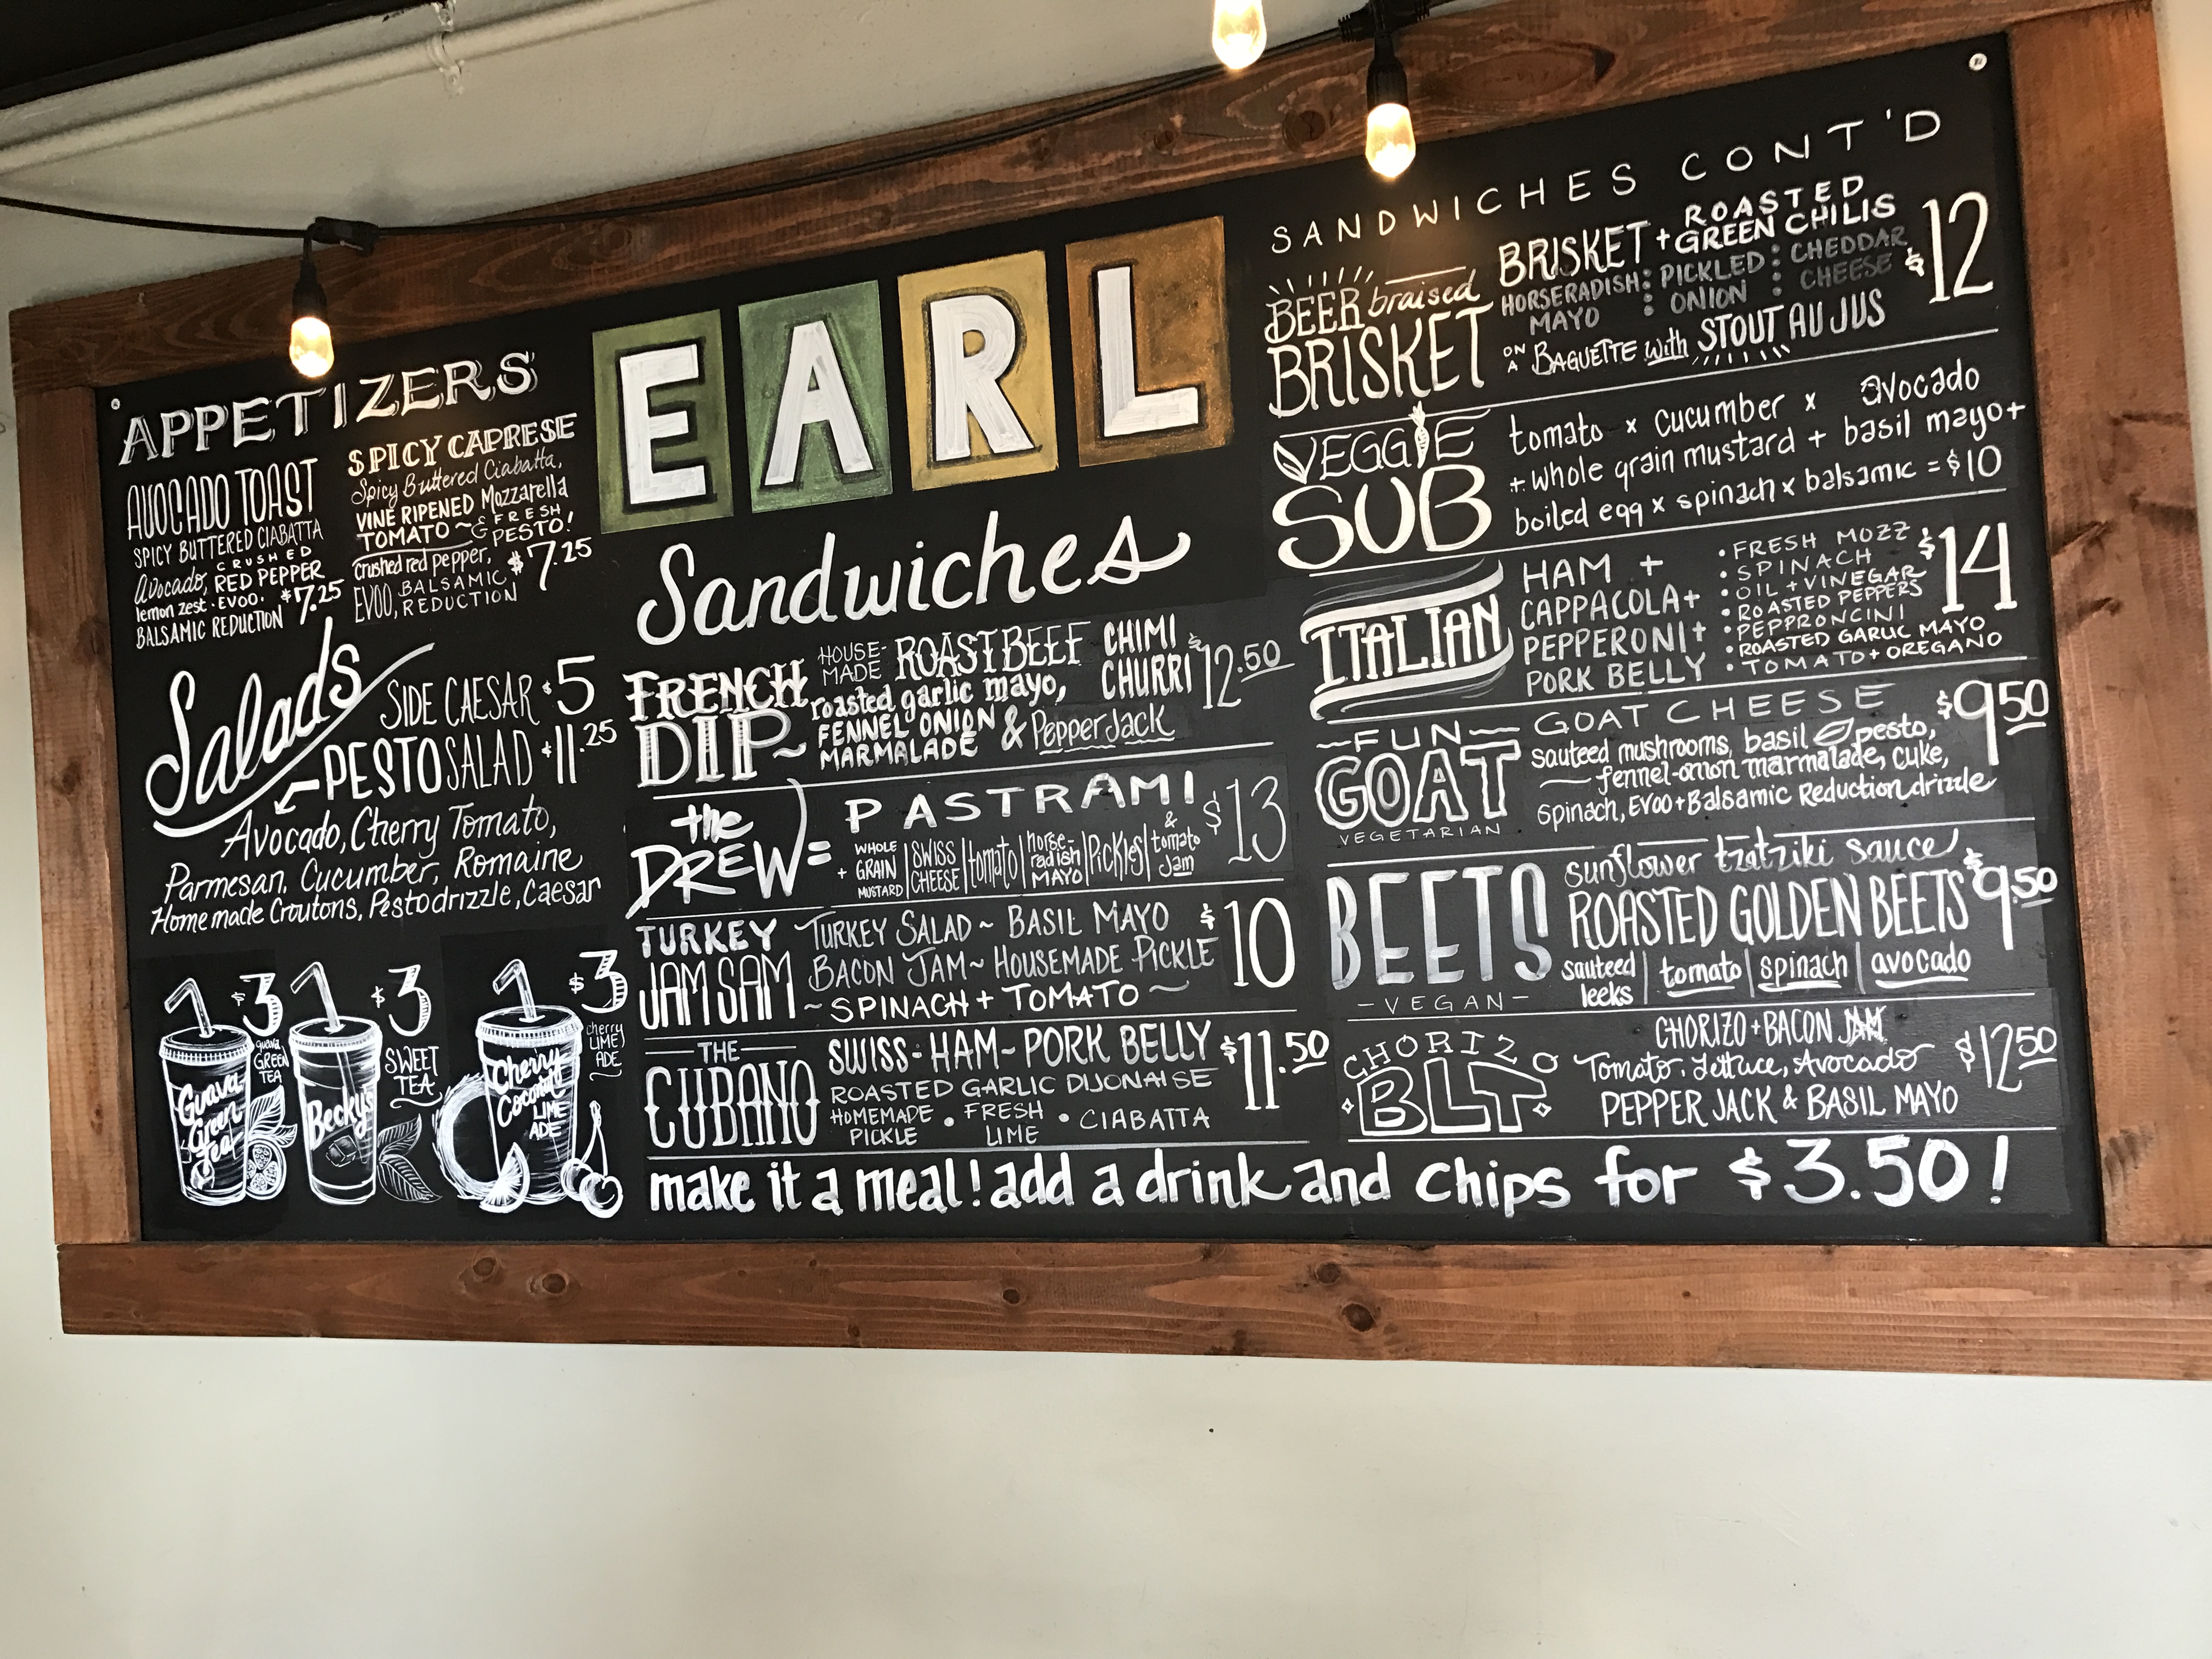 EARL
APPETIZERS
AVOCADO TOAST
SPICY BUTTERED CIABATTA
Avocado, CRUSHED RED PEPPER
lemon zest · EVOO ·
BALSAMIC REDUCTION $7.25
SPICY CAPRESE
Spicy Buttered Ciabatta,
VINE RIPENED Mozzarella
TOMATO ~ & FRESH PESTO!
crushed red pepper,
EVOO, BALSAMIC REDUCTION $7.25
Salads
SIDE CAESAR $5
PESTO SALAD $11.25
Avocado, Cherry Tomato,
Parmesan, Cucumber, Romaine
Homemade Croutons, Pesto drizzle, Caesar
$3
guava GREEN TEA
Guava Green Tea
$3
SWEET TEA
Becky's
$3
cherry LIME ADE
Cherry Coconut LIME ADE
Sandwiches
FRENCH DIP ~
HOUSE-MADE ROAST BEEF CHIMI CHURRI $12.50
roasted garlic mayo,
FENNEL ONION MARMALADE & Pepper Jack
the DREW =
PASTRAMI $13
+ WHOLE GRAIN MUSTARD | SWISS CHEESE | tomato | horse-radish MAYO | Pickles | & tomato Jam
TURKEY JAM SAM
TURKEY SALAD ~ BASIL MAYO $10
BACON JAM ~ HOUSEMADE PICKLE
~ SPINACH + TOMATO ~
THE CUBANO
SWISS - HAM ~ PORK BELLY $11.50
ROASTED GARLIC DIJONAISE
HOMEMADE PICKLE • FRESH LIME • CIABATTA
SANDWICHES CONT'D
BEER braised BRISKET
BRISKET + ROASTED GREEN CHILIS $12
HORSERADISH MAYO : PICKLED ONION : CHEDDAR CHEESE
ON A BAGUETTE with STOUT AU JUS
VEGGIE SUB
tomato x cucumber x avocado
+ whole grain mustard + basil mayo +
boiled egg x spinach x balsamic = $10
ITALIAN
HAM +
CAPPACOLA +
PEPPERONI +
PORK BELLY
• FRESH MOZZ $14
• SPINACH
• OIL + VINEGAR
• ROASTED PEPPERS
• PEPPRONCINI
• ROASTED GARLIC MAYO
• TOMATO + OREGANO
FUN GOAT
VEGETARIAN
GOAT CHEESE $9.50
sauteed mushrooms, basil pesto,
fennel-onion marmalade, cuke,
Spinach, EVOO + Balsamic Reduction drizzle
BEETS
- VEGAN -
sunflower tzatziki sauce $9.50
ROASTED GOLDEN BEETS
sauteed leeks | tomato | spinach | avocado
CHORIZO BLT
CHORIZO + BACON JAM $12.50
Tomato, Lettuce, Avocado
PEPPER JACK & BASIL MAYO
make it a meal! add a drink and chips for $3.50!